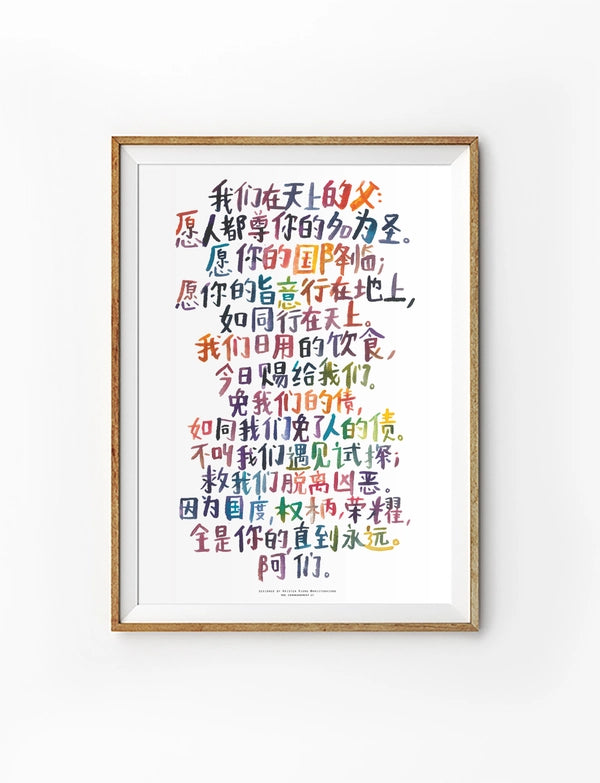 我们在天上的父:
愿人都尊你的名为圣。
愿你的国降临;
愿你的旨意行在地上,
如同行在天上。
我们日用的饮食,
今日赐给我们。
免我们的债,
如同我们免了人的债。
不叫我们遇见试探;
救我们脱离凶恶。
因为国度,权柄,荣耀,
全是你的,直到永远。
阿们。